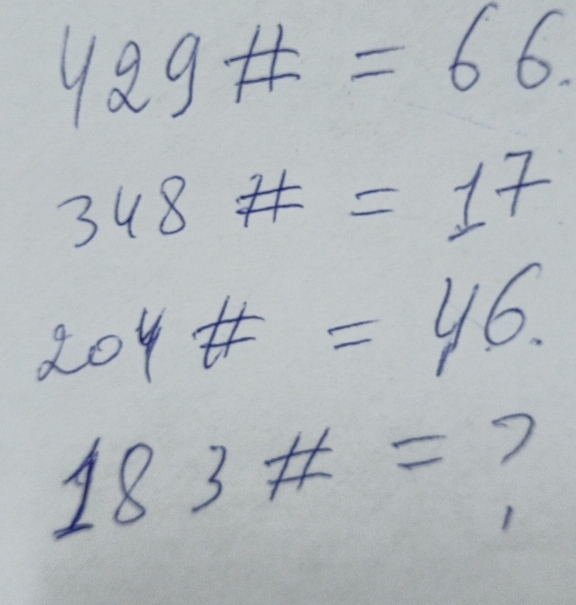 429 # = 66.
348 # = 17
204 # = 46.
183 # = ?